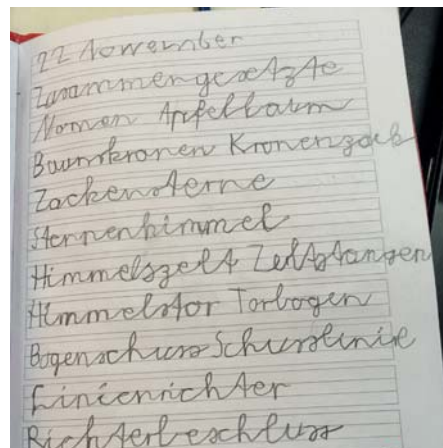 22 Nowember
Zusammengesetzte
Nomen Apfelbaum
Baumskronen Kronenzack
Zackensterne
Sternenhimmel
Himmelszelt Zeltstangen
Himmelstor Torbogen
Bogenschuss Schusslinie
Linienrichter
Richterbeschluss